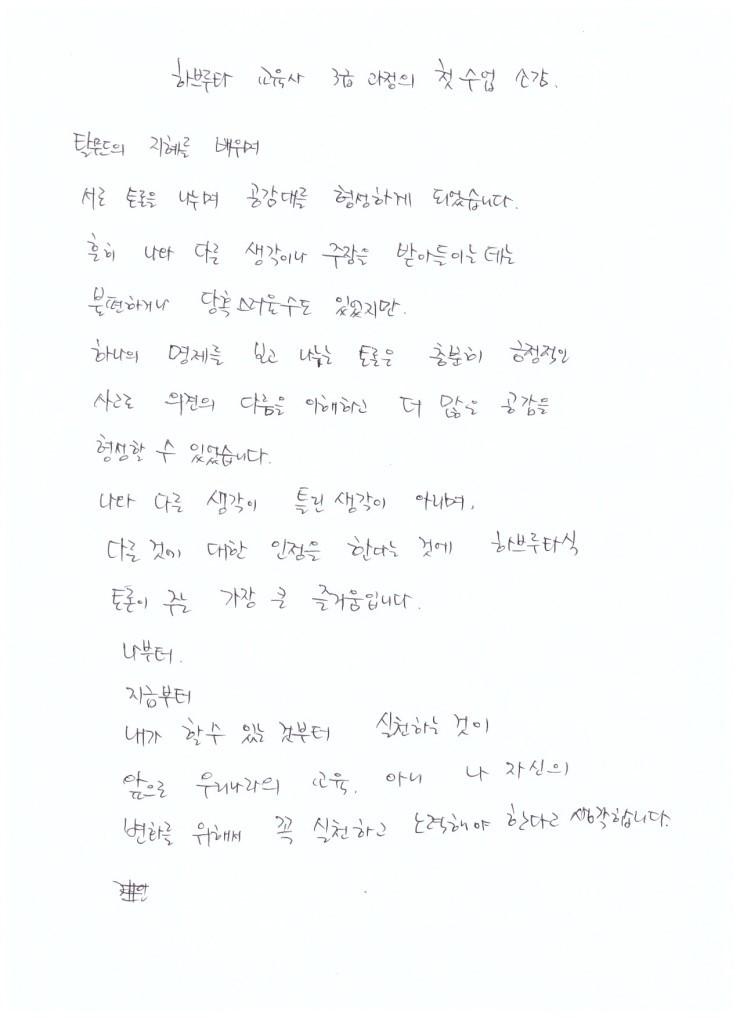 하브루타 교육사 3급 과정의 첫 수업 소감.
탈무드의 지혜를 배우며
서로 토론을 나누며 공감대를 형성하게 되었습니다.
흔히 나와 다른 생각이나 주장을 받아들이는데는
불편하거나 당혹스러울수도 있었지만.
하나의 명제를 보고 나눈는 토론은 충분히 긍정적인
사고로 의견의 다름을 이해하고 더 많은 공감을
형성할 수 있었습니다.
나와 다른 생각이 틀린 생각이 아니며,
다른 것에 대한 인정을 한다는 것에 하브루타식
토론이 주는 가장 큰 즐거움입니다.
나부터.
지금부터
내가 할수 있는 것부터 실천하는 것이
앞으로 우리나라의 교육. 아니 나 자신의
변화를 위해서 꼭 실천하고 노력해야 한다고 생각합니다.